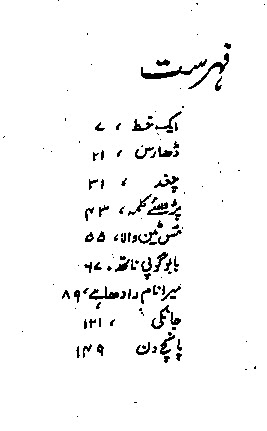 فہرست
ایک خط ، ۷
ڈھارس ، ۲۱
چغد ، ۳۱
پڑھیے کلمہ ، ۴۳
مس ٹین والا، ۵۵
بابو گوپی ناتھ ، ۶۷
میرا نام رادھا ہے، ۸۹
جانکی ، ۱۲۱
پانچ دن ۱۴۹